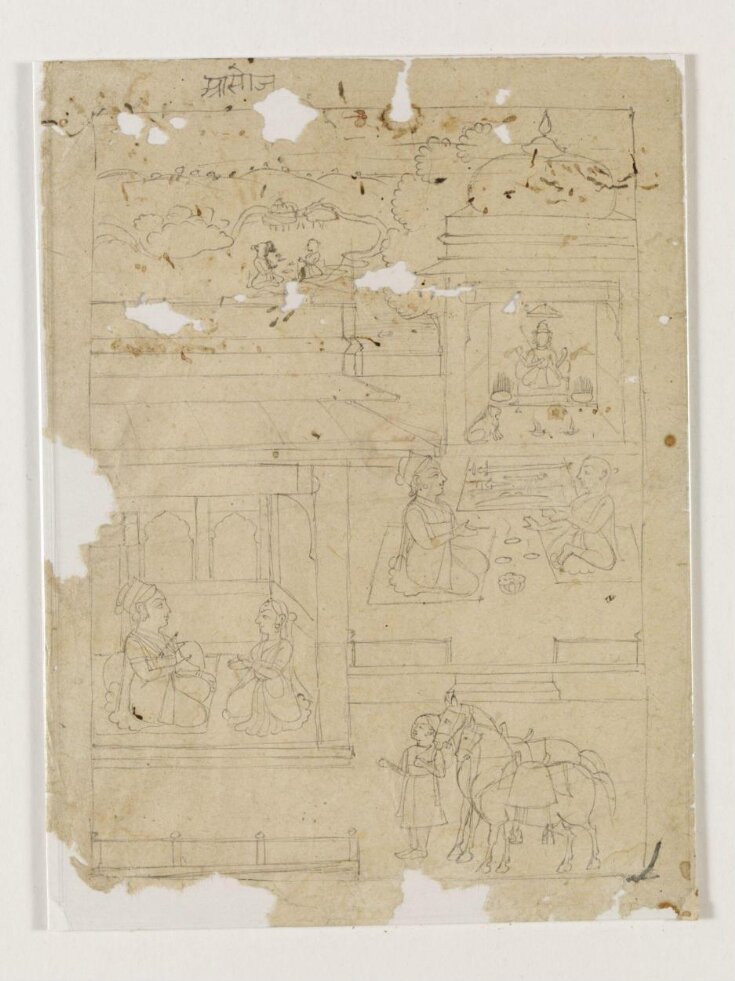 आसोज